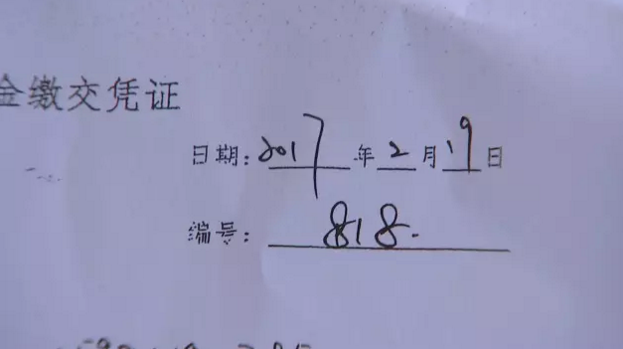 金缴交凭证
日期:2017年2月19日
编号:818.